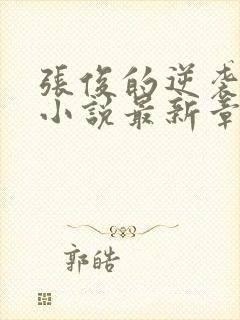 張俊的逆袭
小說最新章
郭皓